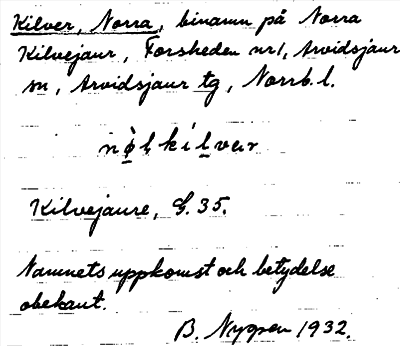 Kilver, Norra, binamn på Norra
Kilvejaur, Forsheden nr 1, Arvidsjaur
sn, Arvidsjaur tg, Norrb. l.
Kilvejaure, G. 35.
Namnets uppkomst och betydelse
obekant.
B. Nygren 1932.